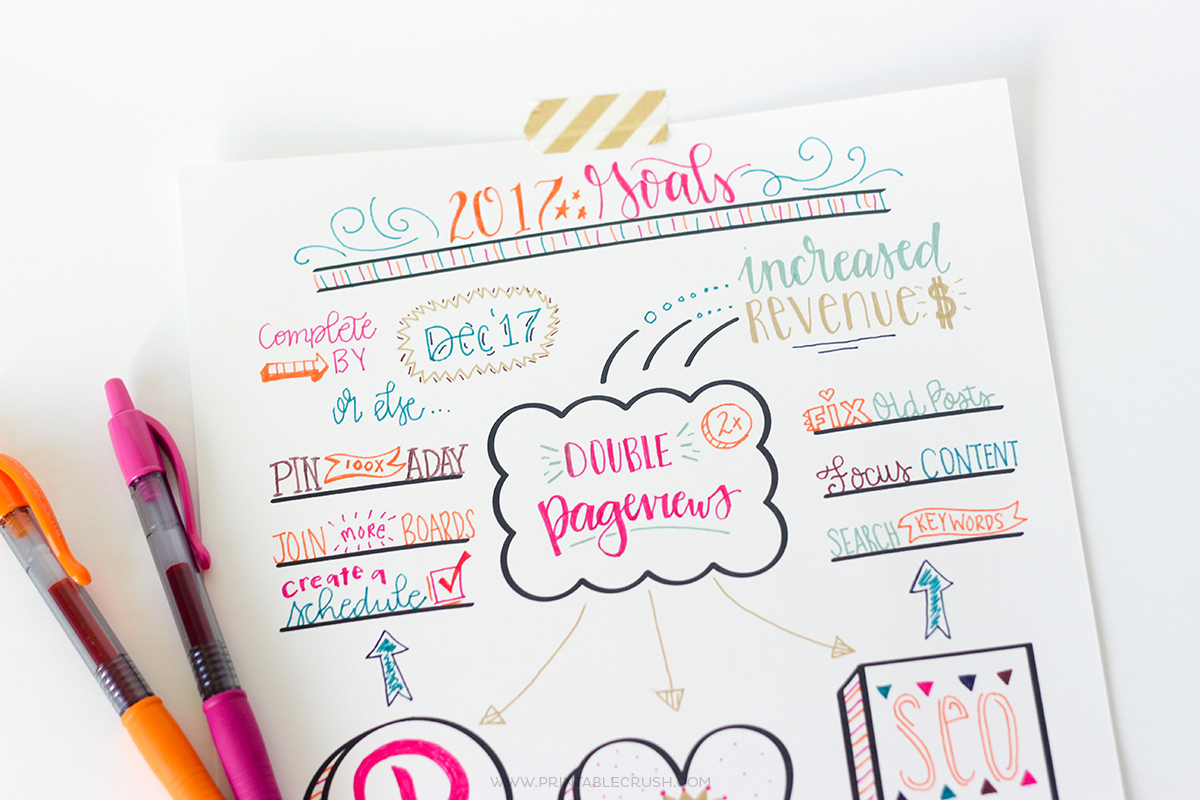 2017 Goals
increased
REVENUE $
Complete
BY
Dec '17
or else...
DOUBLE
pageviews
2x
PIN 100X A DAY
JOIN more BOARDS
create a
schedule
FIX Old Posts
Focus CONTENT
SEARCH KEYWORDS
SEO
WWW.PRINTABLECRUSH.COM